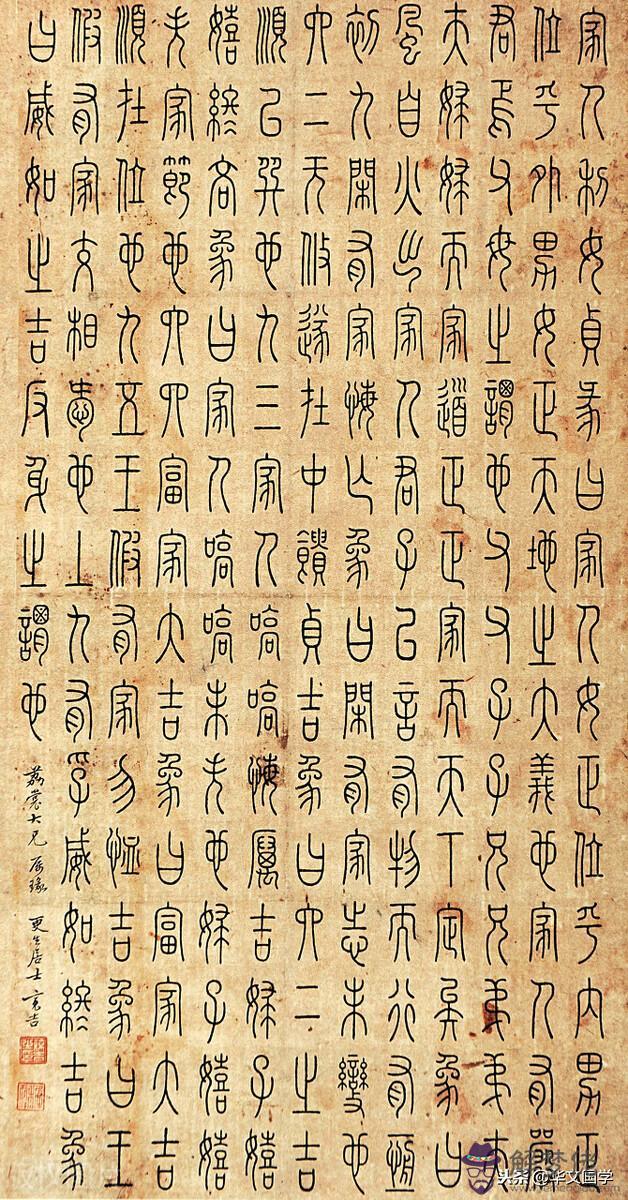 家人利女貞彖曰家人女正位乎内男正
位乎外男女正天地之大義也家人有嚴
君焉父母之謂也父父子子兄兄弟弟夫
夫婦婦而家道正正家而天下定矣象曰
風自火出家人君子以言有物而行有恆
初九閑有家悔亡象曰閑有家志未變也
六二无攸遂在中饋貞吉象曰六二之吉
順以巽也九三家人嗃嗃悔厲吉婦子嬉
嬉終吝象曰家人嗃嗃未失也婦子嬉嬉
失家節也六四富家大吉象曰富家大吉
順在位也九五王假有家勿恤吉象曰王
假有家交相愛也上九有孚威如終吉象
曰威如之吉反身之謂也
荔裳大兄屬篆 更生居士亮吉
头条 @华文国学